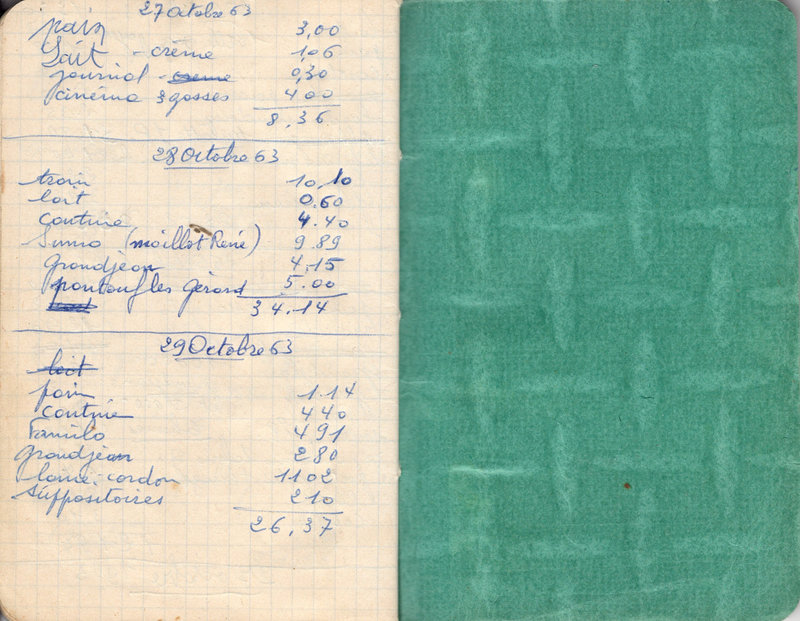 27 Octobre 63
pain 3,00
Lait - crème 1,06
journal - 0,30
cinéma 3 gosses 4 00
8,36
28 Octobre 63
train 10,10
lait 0.60
cantine 4.40
Suma (maillot René) 9 89
grandjean 4,15
pantoufles Gérard 5.00
34.14
29 Octobre 63
lait
pain 1.14
cantine 4 40
Familo 4 91
grandjean 2 80
laine. cordon 11 02
Suppositoires 2 10
26,37